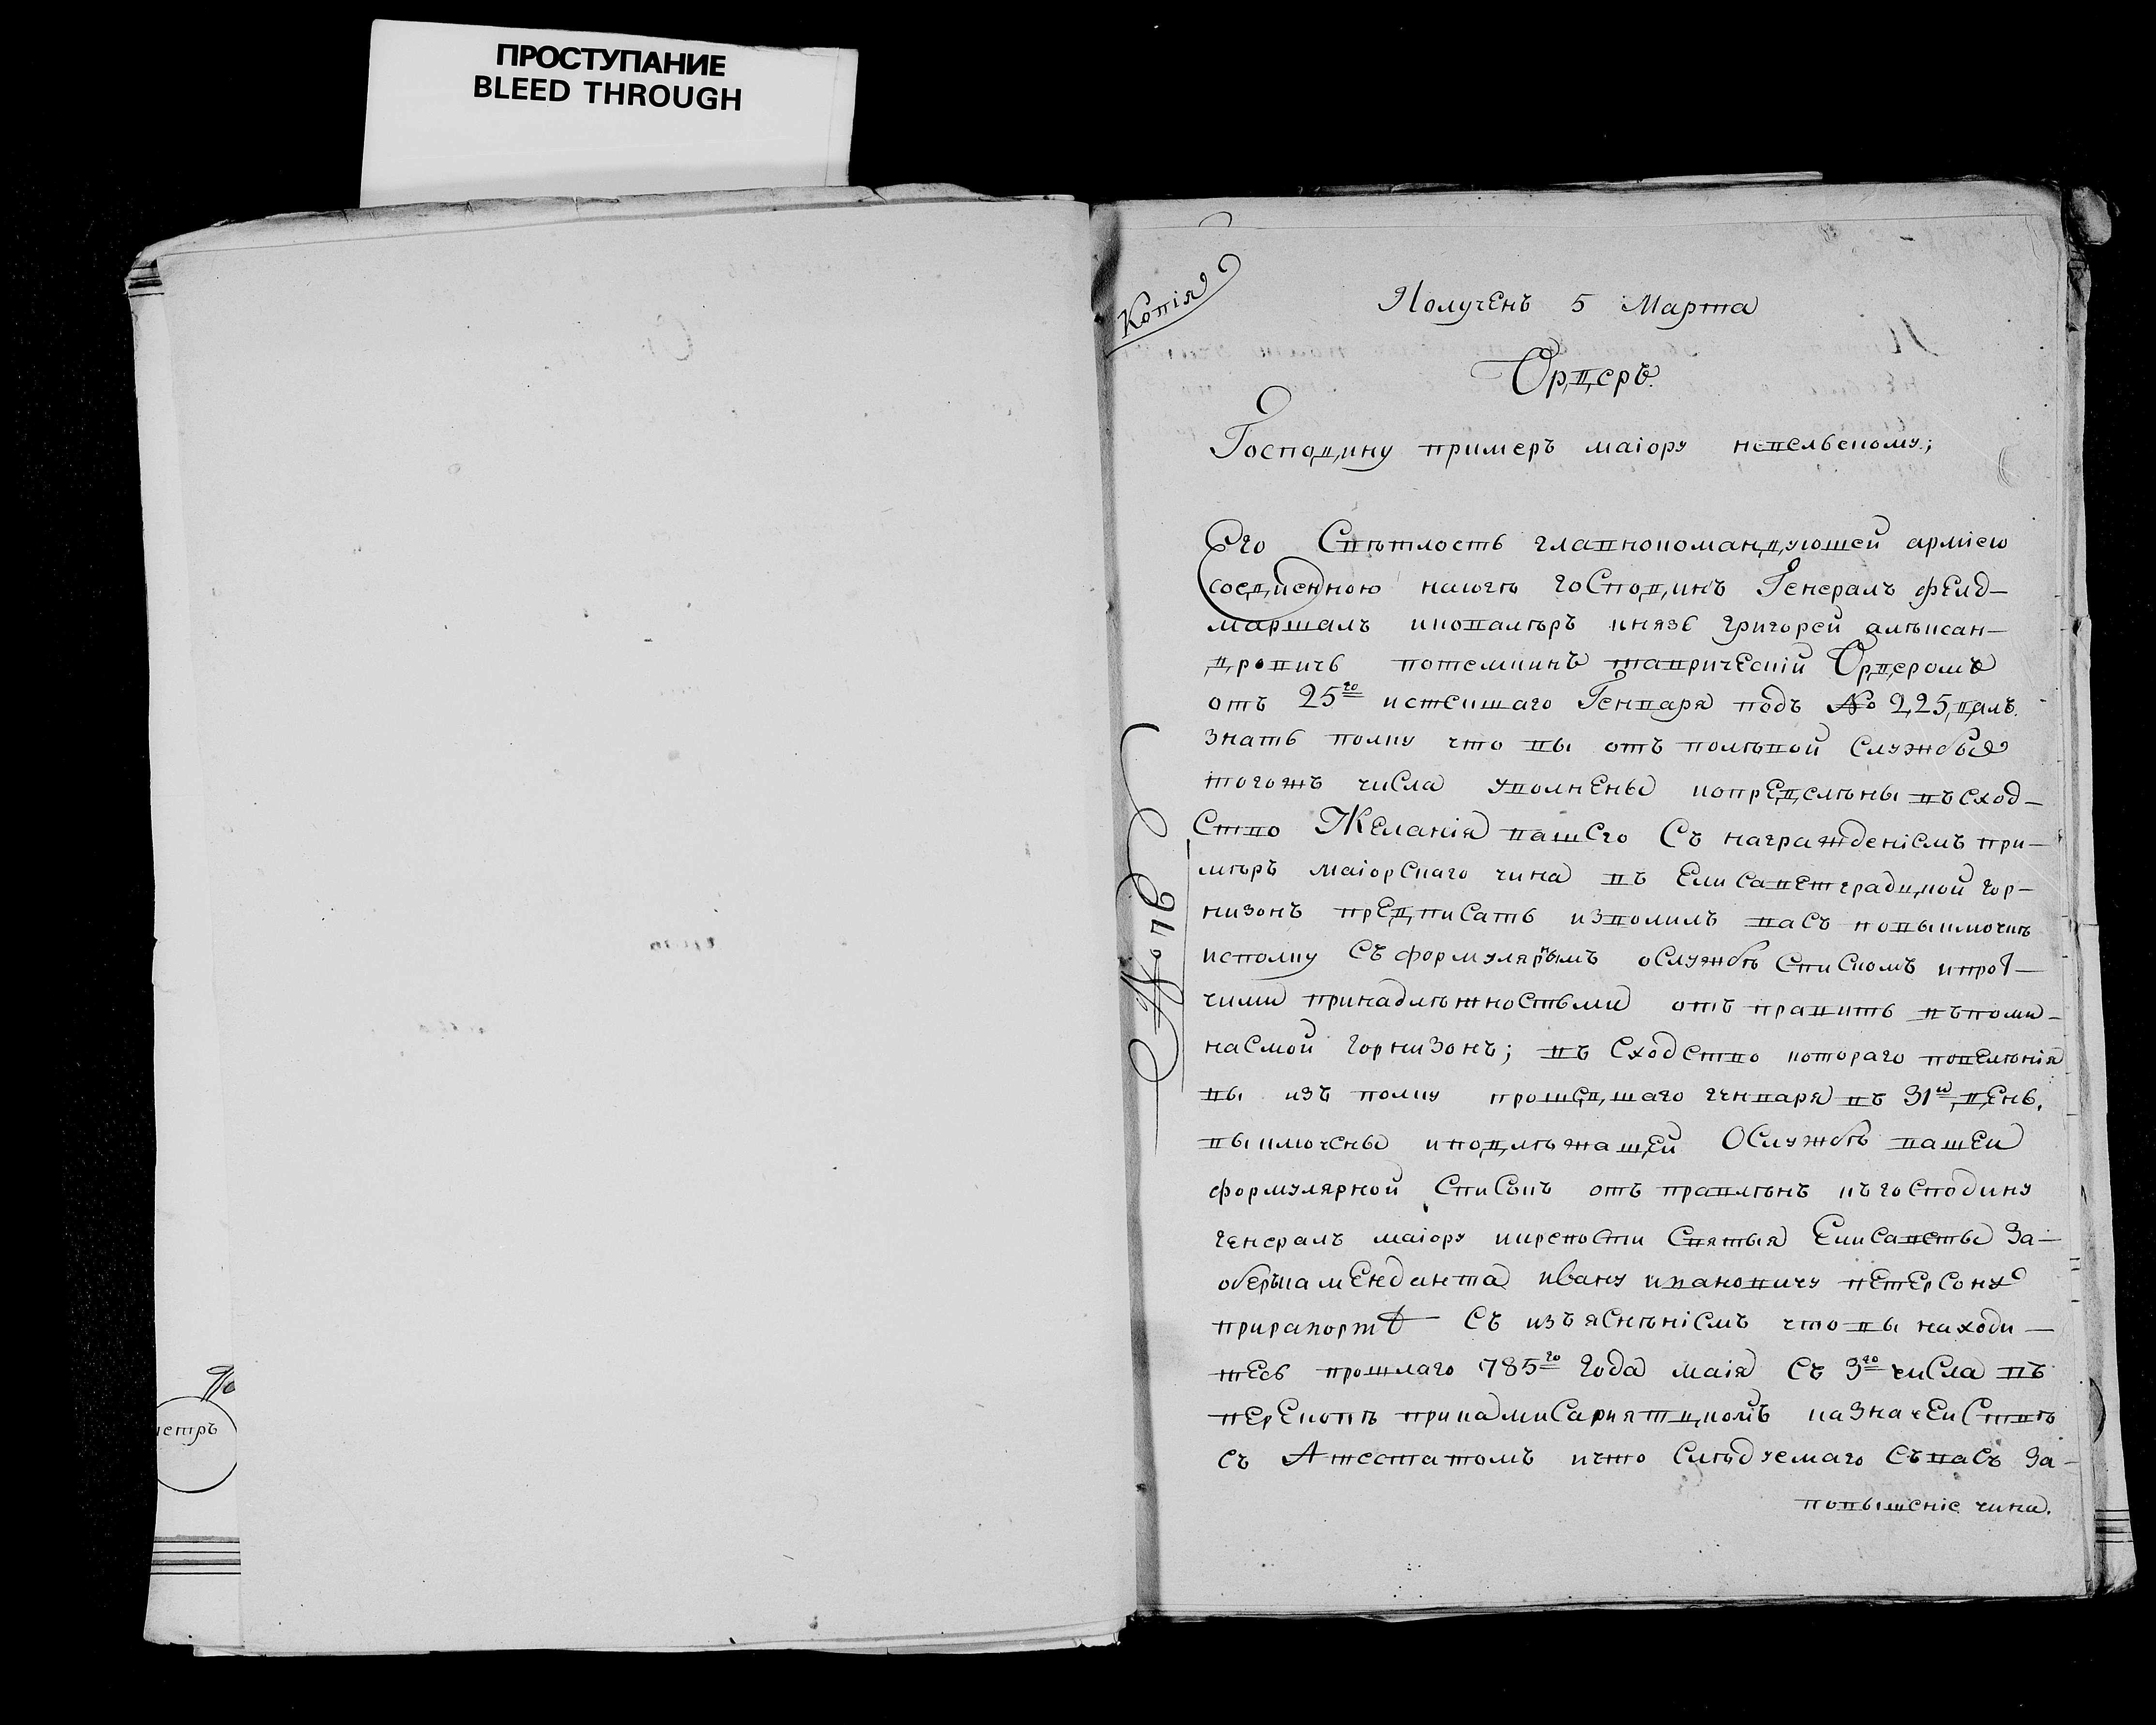 ПРОСТУПАНИЕ
BLEED THROUGH
Копія
Полученъ 5 Марта
Ордеръ.
Господину примеръ маіору невельскому;
Его Свѣтлость главнокомандующей арміею
соединенною
господинъ Генералъ фелд-
маршалъ икавалѣръ князь григорей алѣксан-
дровичь потемкинъ таврической Ордеромъ
отъ 25го истекшаго Генваря подъ № 225, далъ
знать полку что вы отъ полѣвой службы
тогожъ числа уволнены иопредѣлѣны въсход-
ство Желанія вашего Съ награжденіемъ при-
мѣръ маіорскаго чина въ Елисаветградцкой гор-
низонъ предписать изволилъ васъ повыключкѣ
исполку съ формулярнымъ ослужбѣ Спискомъ ипрот-
чими принадлѣжностьми отъ править въпоми-
наемой горнизонъ; въ сходство котораго повелѣнія
вы изъ полку прошедшаго генваря въ 31й день,
выключены иподлѣжащей Ослужбѣ вашей
формулярной Списокъ отъ правлѣнъ къгосподину
генералъ маіору крепости Святыя Елисаветы За-
оберъкаменданта ивану ивановичу петерсону
прирапортѣ Съ изъяснѣніемъ что вы находи-
тесь прошлаго 785го года маія Съ 3го числа въ
перекопѣ прикамисариятцкомъ казначействѣ
съ Атестатомъ ичто Слѣдуемаго Съвасъ За-
повышеніе чина.
№ 76
№
метръ